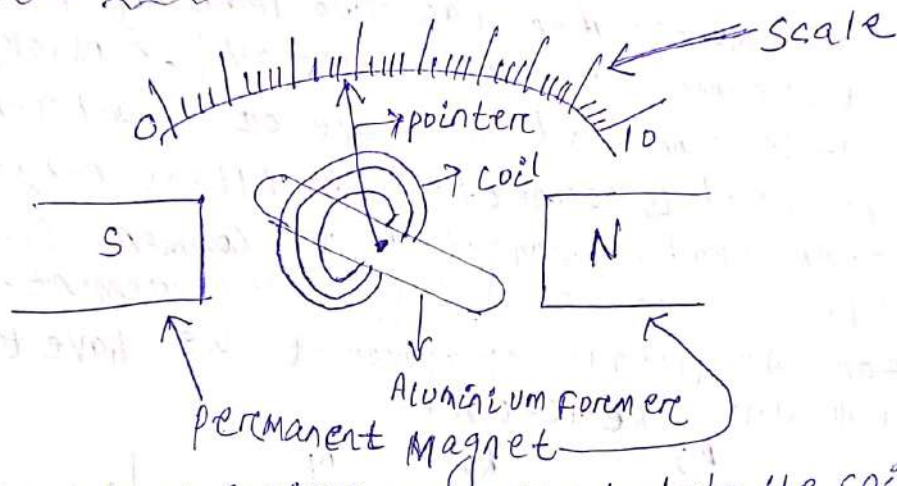 Scale
0
10
pointere
coil
S
N
Aluminium Foremere
peremanent Magnet